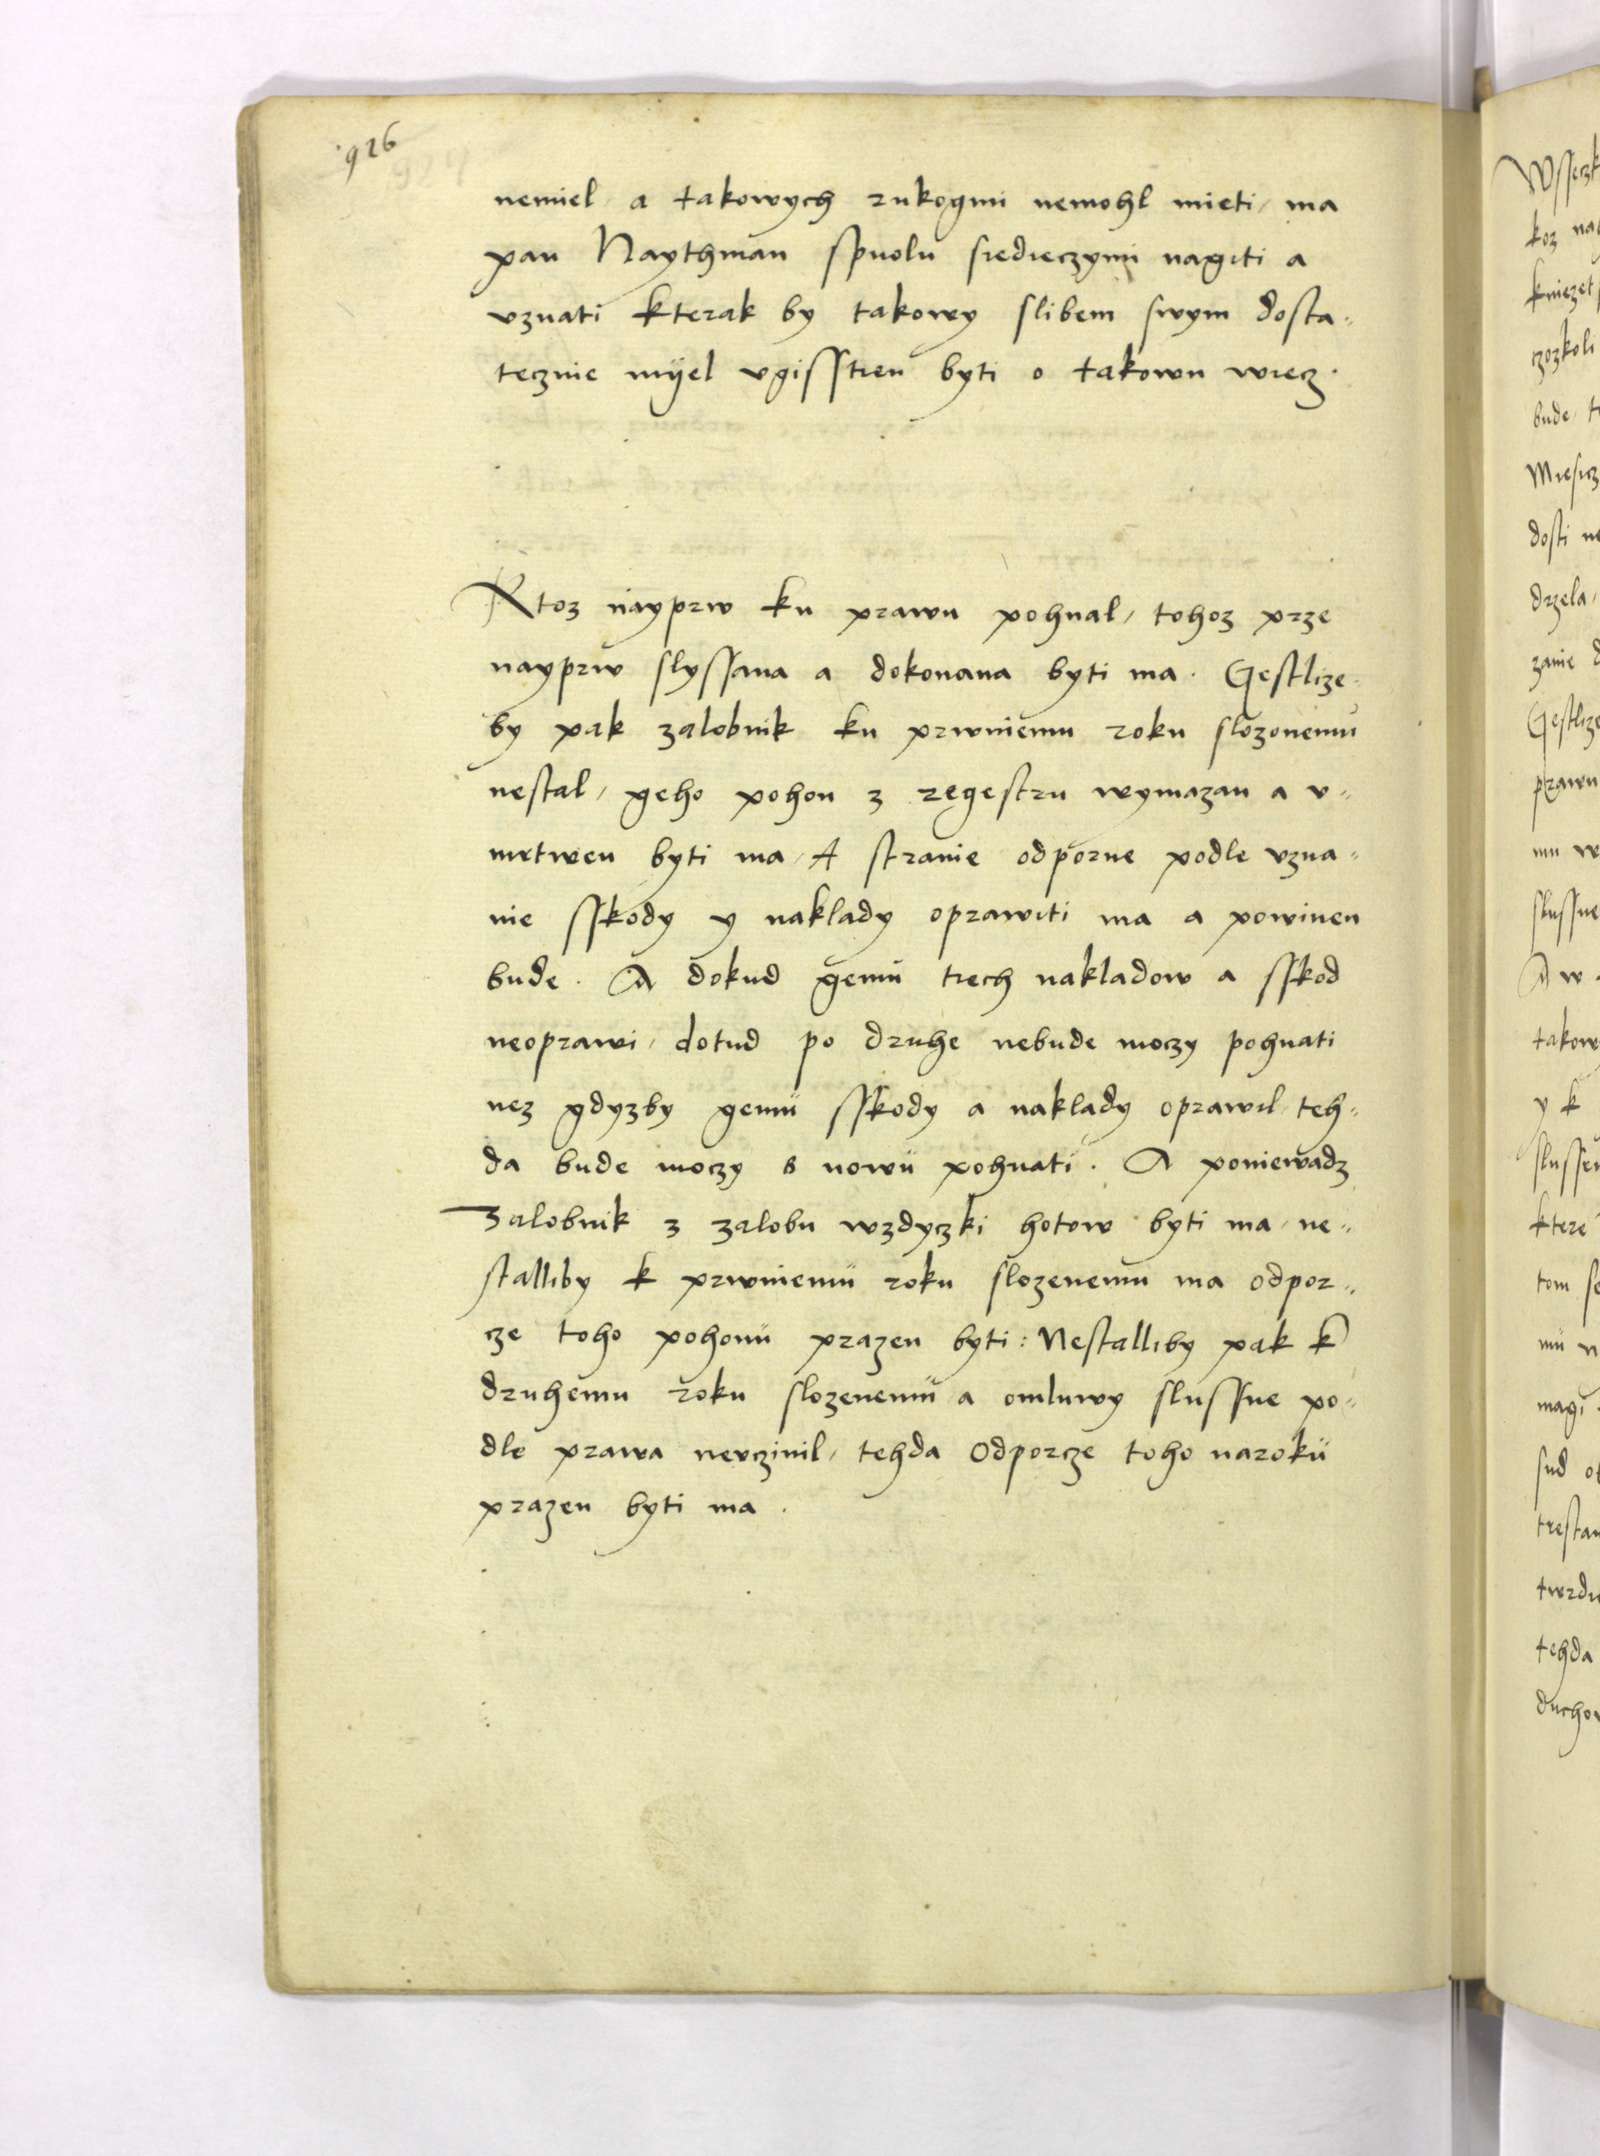 926
nemiel a takowych rukogmi nemohl mieti, ma
pan Haythman spuolu siedieczymi nagiti a
vznati kterak by takowy slibem swym dosta-
tecznie mijel vgissten byti o takowu wiecz.
Ktoz nayprw ku prawu pohnal, tohoz prze
nayprw slyssana a dokonana byti ma. Gestlize
by pak zalobnik ku prwniemu roku slozonemu
nestal, geho pohon z regestru wymazan a v-
mrtwen byti ma, A stranie odporne podle vzna-
nie sskody y naklady oprawiti ma a powinen
bude. A dokud gemu tiech nakladow a sskod
neoprawi, dotud po druhe nebude moczy pohnati
nez gdyzby gemu sskody a naklady oprawil teh-
da bude moczy s nowu pohnati. A poniewadz
Zalobnik z zalobu wzdyczki hotow byti ma, ne-
stalliby k prwniemu roku slozenemu ma odpor-
cze toho pohonu prazen byti: Nestalliby pak k
druhemu roku slozenemu a omluwy slussne po-
dle prawa nevczinil, tehda Odporcze toho naroku
prazen byti ma.
Wsseczk
koz nag
kniezet
czozkoli
bude, t
Miesicz
dosti ne
drzela,
zanie d
Gestlize
prawu
mu w
slussne
A w
takow
y k
slussen
ktere
tom se
mu n
magi
sud o
trestan
twrdi
tehda
duchow